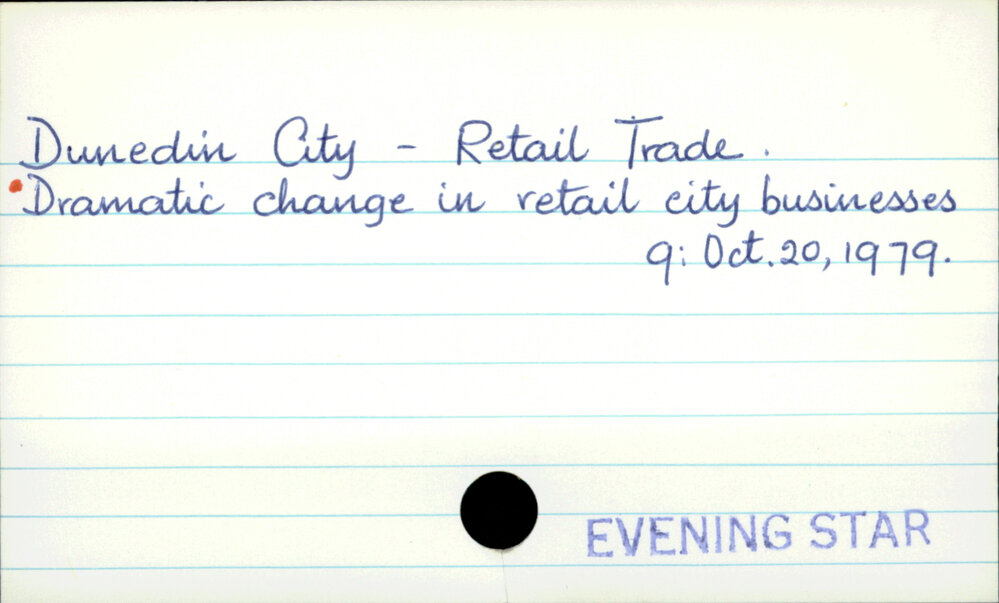 Dunedin City - Retail Trade.
Dramatic change in retail city businesses
9: Oct. 20, 1979.
EVENING STAR